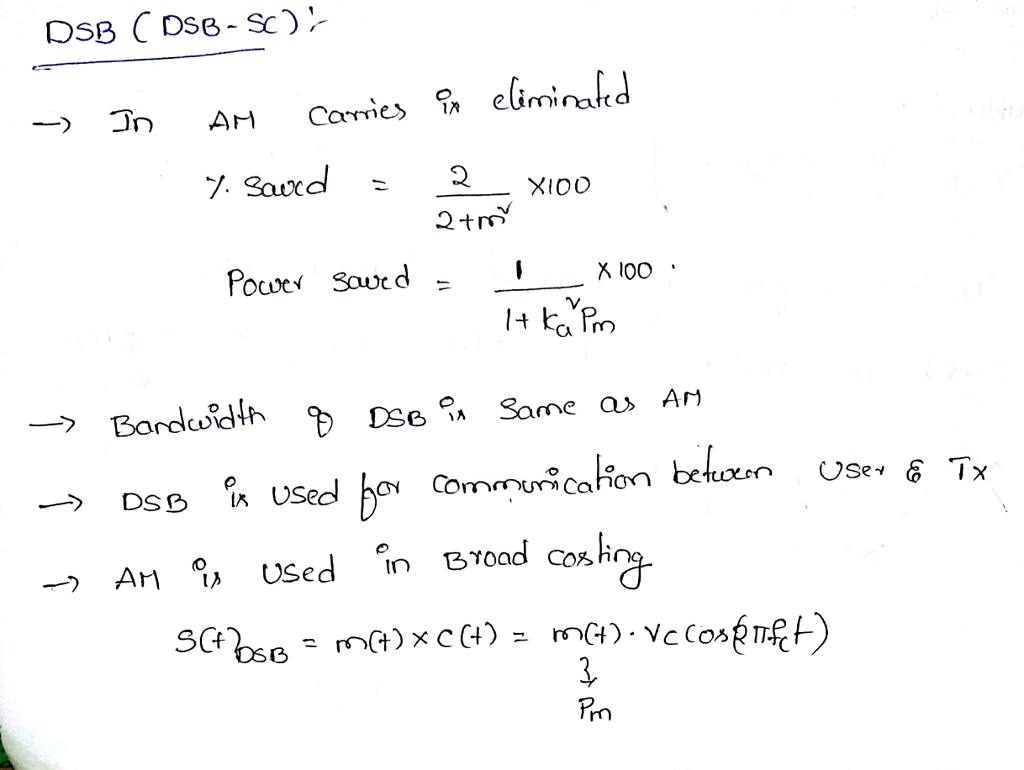 DSB (DSB-SC):-
→ In AM Carries is eliminated
% Saved = 2/(2+m²) X100
Power saved = 1/(1+ka²Pm) X 100.
→ Bandwidth of DSB is Same as AM
→ DSB is used for communication between User & Tx
→ AM is used in Broad costing
S(t)DSB = m(t) x C(t) = m(t). Vc Cos(2πfct)
Pm